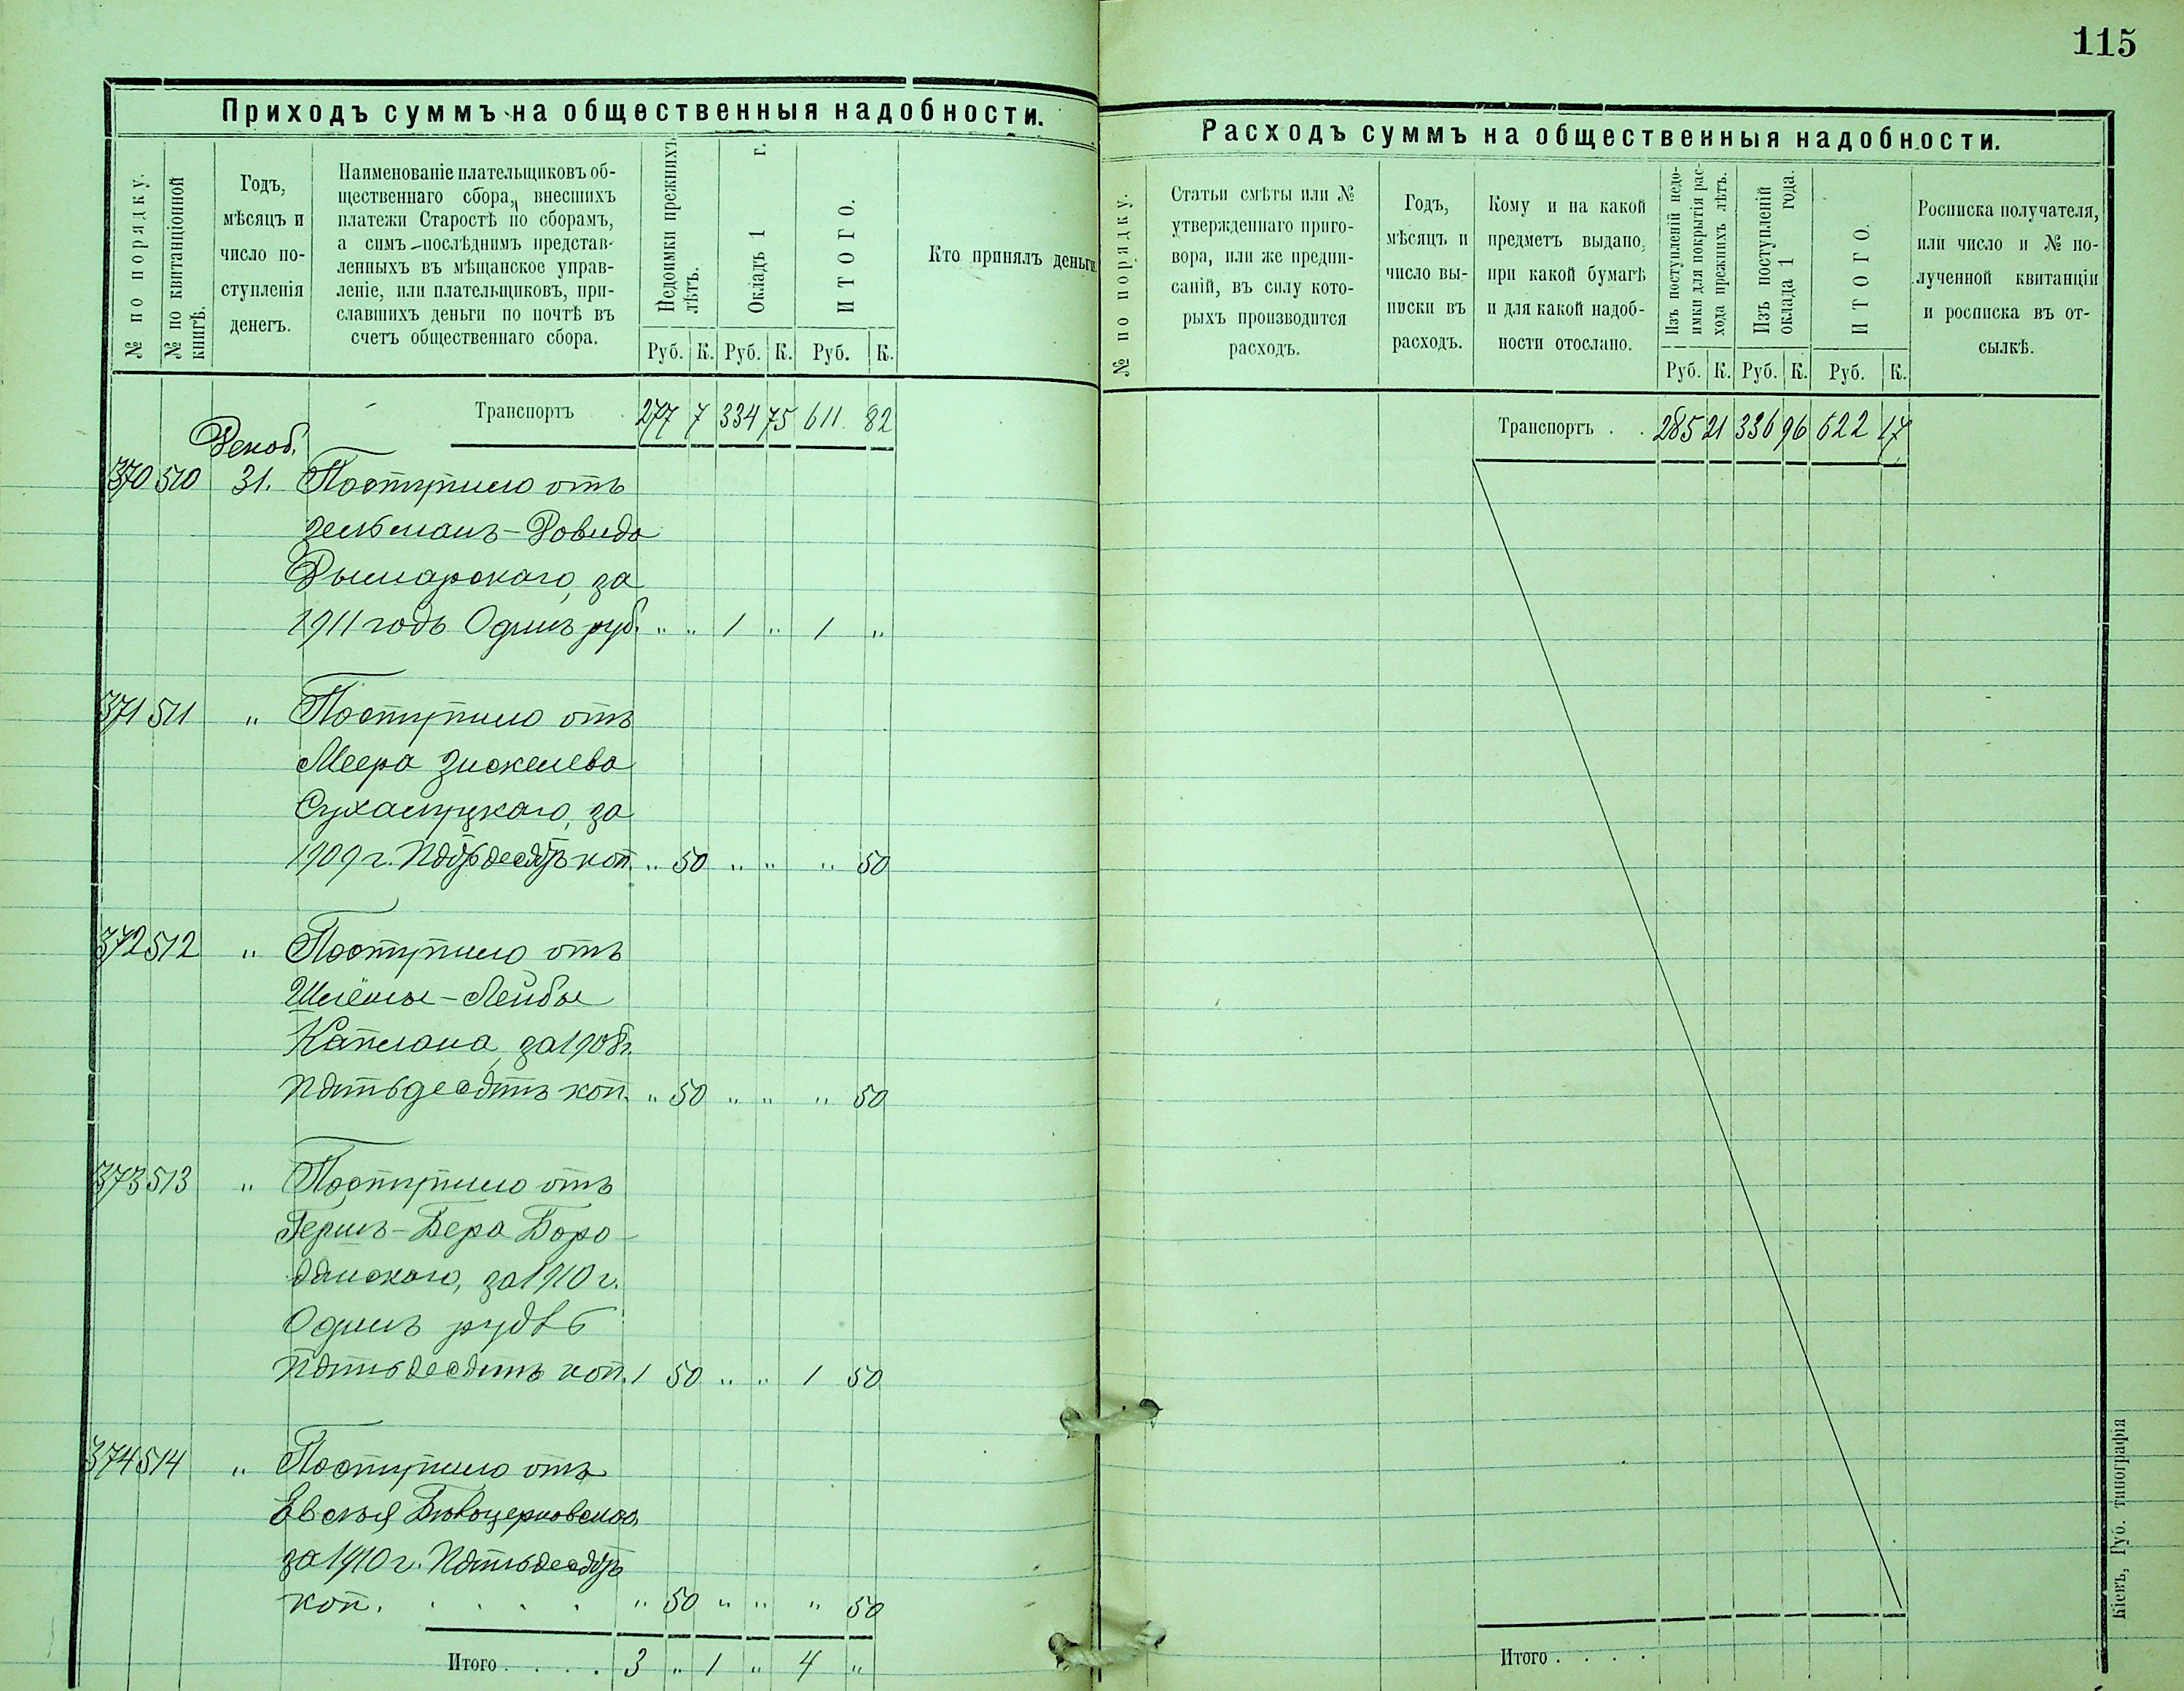 115
Приходъ суммъ на общественныя надобности.
№ по порядку.
№ по квитанціонной книгѣ.
Годъ,
мѣсяцъ и
число по-
ступленія
денегъ.
Наименованіе плательщиковъ об-
щественнаго сбора, внесшихъ
платежи Старостѣ по сборамъ,
а симъ послѣднимъ представ-
ленныхъ въ мѣщанское управ-
леніе, или плательщиковъ, при-
славшихъ деньги по почтѣ въ
счетъ общественнаго сбора.
Недоимки прежнихъ
лѣтъ.
Окладъ 1 г.
ИТОГО.
Кто принялъ деньги.
Руб. К. Руб. К. Руб. К.
Транспортъ 277 7 334 75 611 82
Декаб.
370 510 31. Поступило отъ
Зельманъ-Довида
Дымарскаго, за
1911 годъ Одинъ руб. " " 1 " 1 "
371 511 " Поступило отъ
Меера Зискелева
Сухалуцкаго, за
1909 г. Пятьдесятъ коп. " 50 " " " 50
372 512 " Поступило отъ
Шлёмы-Лейбы
Каплана, за 1908 г.
Пятьдесятъ коп. " 50 " " " 50
373 513 " Поступило отъ
Герша-Бера Боро-
дянскаго, за 1910 г.
Одинъ рубль
Пятьдесятъ коп. 1 50 " " 1 50
374 514 " Поступило отъ
Евсея
за 1910 г. Пятьдесятъ
коп. . . . . " 50 " " " 50
Итого . . . . 3 " 1 " 4 "
Расходъ суммъ на общественныя надобности.
№ по порядку.
Статьи смѣты или №
утвержденнаго приго-
вора, или же предпи-
саній, въ силу кото-
рыхъ производится
расходъ.
Годъ,
мѣсяцъ и
число вы-
писки въ
расходъ.
Кому и на какой
предметъ выдано,
при какой бумагѣ
и для какой надоб-
ности отослано.
Изъ поступленій недо-
имки для покрытія рас-
хода прежнихъ лѣтъ.
Изъ поступленій
оклада 1 года.
ИТОГО.
Росписка получателя,
или число и № по-
лученной квитанціи
и росписка въ от-
сылкѣ.
Руб. К. Руб. К. Руб. К.
Транспортъ . . 285 21 336 96 622 17
Итого . . . .
Кіевъ, Губ. типографія